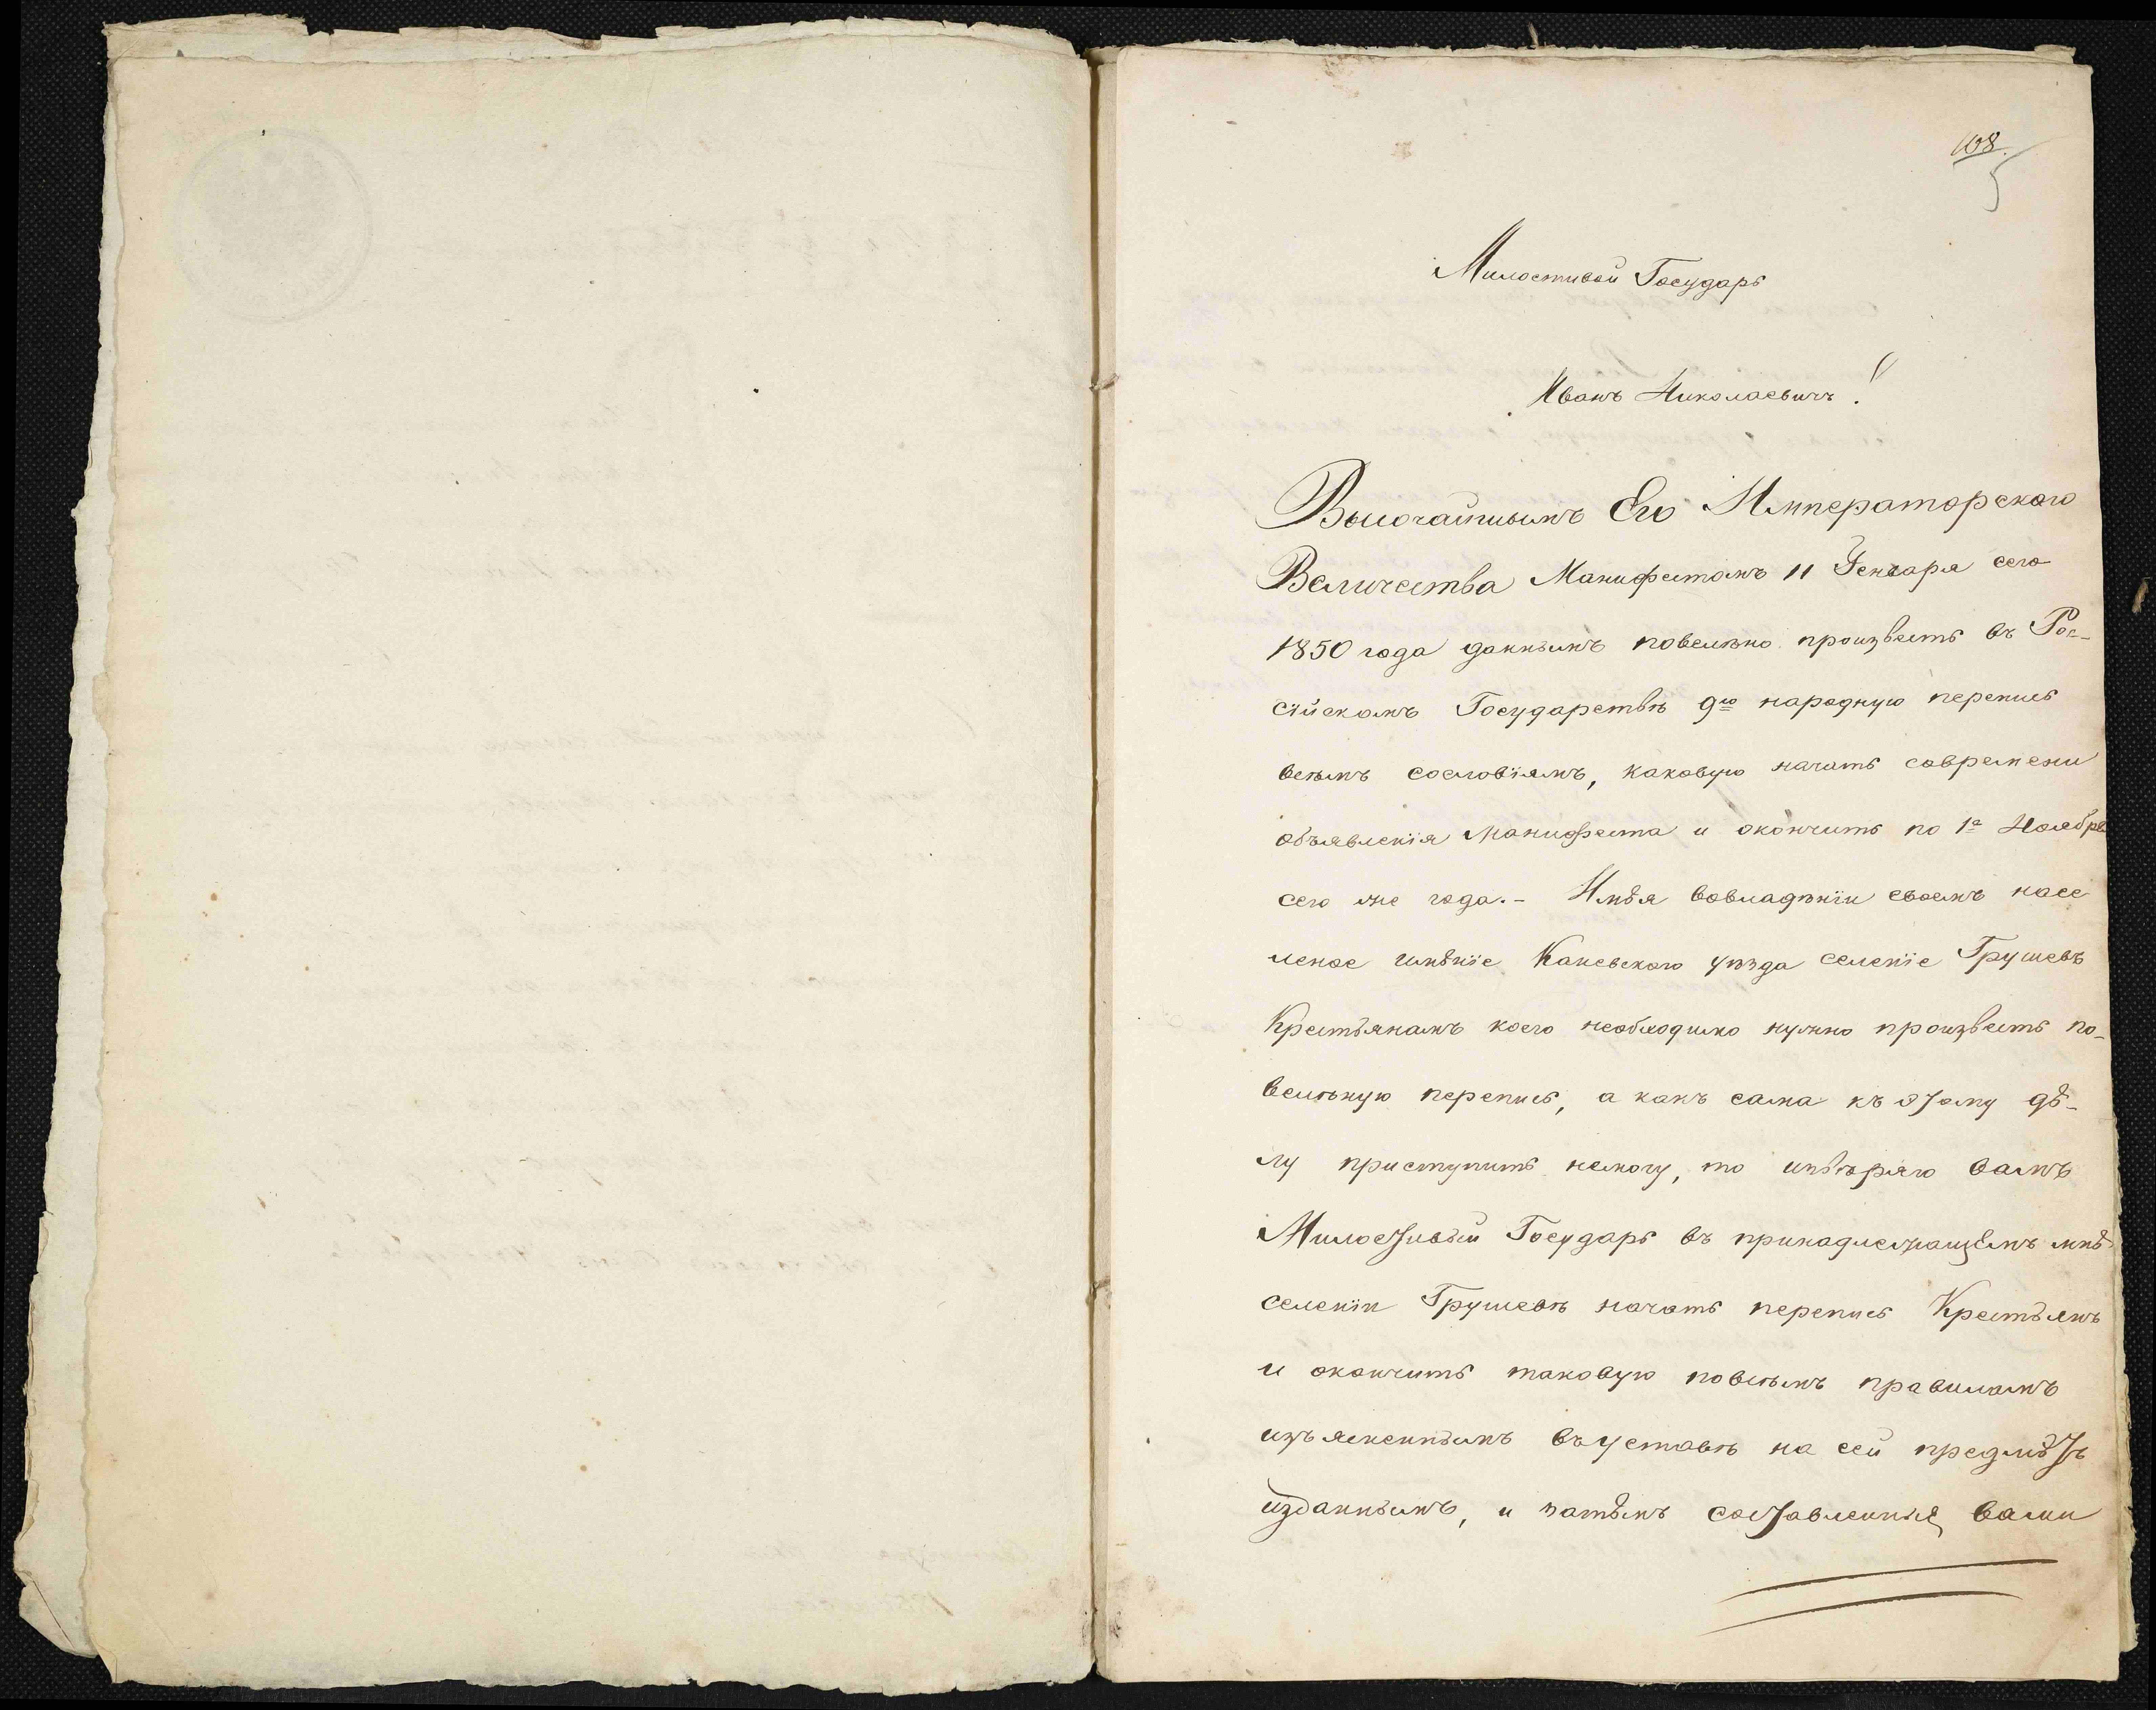 108
Милостивой Государь
Иванъ Николаевичъ!
Высочайшымъ Его Императорского
Величества Манифестомъ 11 Генваря сего
1850 года даннымъ повелѣно произвесть въ Рос-
сійскомъ Государствѣ 9ю народную перепись
всѣмъ сословіямъ, каковую начать современи
объявленія манифеста и окончить по 1е Ноября
сего же года.- Имѣя вовладѣніи своемъ насе
леное имѣніе Каневского уѣзда селеніе Грушевъ
Крестьянамъ коего необходимо нужно произвесть по-
велѣную перепись, а какъ сама къ этому дѣ-
лу приступить немогу, то ввѣряю вамъ
Милостивый Государь въ принадлежащемъ мнѣ
селеніи Грушевѣ начать перепись Крестьянъ
и окончить таковую повсѣмъ правиламъ
изъясненнымъ въуставѣ на сей предмѣтъ
изданнымъ, и затѣмъ составленныя вами